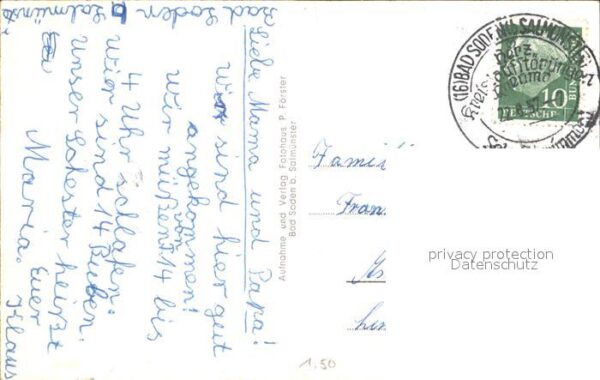 Bad Soden
Salmünster,
Liebe Mama und Papa!
Wir sind hier gut
angekommen!
wir müßen von 14 bis
4 Uhr schlafen.
Wier sind 14 Buben.
Unser Schester heißt
Maria. Euer
Klaus
Aufnahme und Verlag Fotohaus P. Förster
Bad Soden b. Salmünster
(16) BAD SODEN KR. SALMÜNSTER
Herz
Kreislaufstörungen
Rheuma
10
DEUTSCHE BUN
Famil
Fran
privacy protection
Datenschutz
1,50